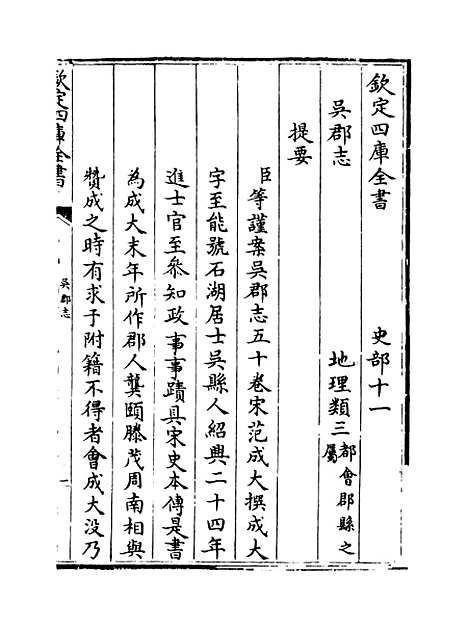 欽定四庫全書　　史部十一
吳郡志　　地理類三都會郡縣之屬
提要
臣等謹案吳郡志五十卷宋范成大撰成大
字至能號石湖居士吳縣人紹興二十四年
進士官至叅知政事事蹟具宋史本傳是書
為成大末年所作郡人龔頤滕茂周南相與
贊成之時有求于附籍不得者會成大沒乃
欽定四庫全書
吳郡志
一